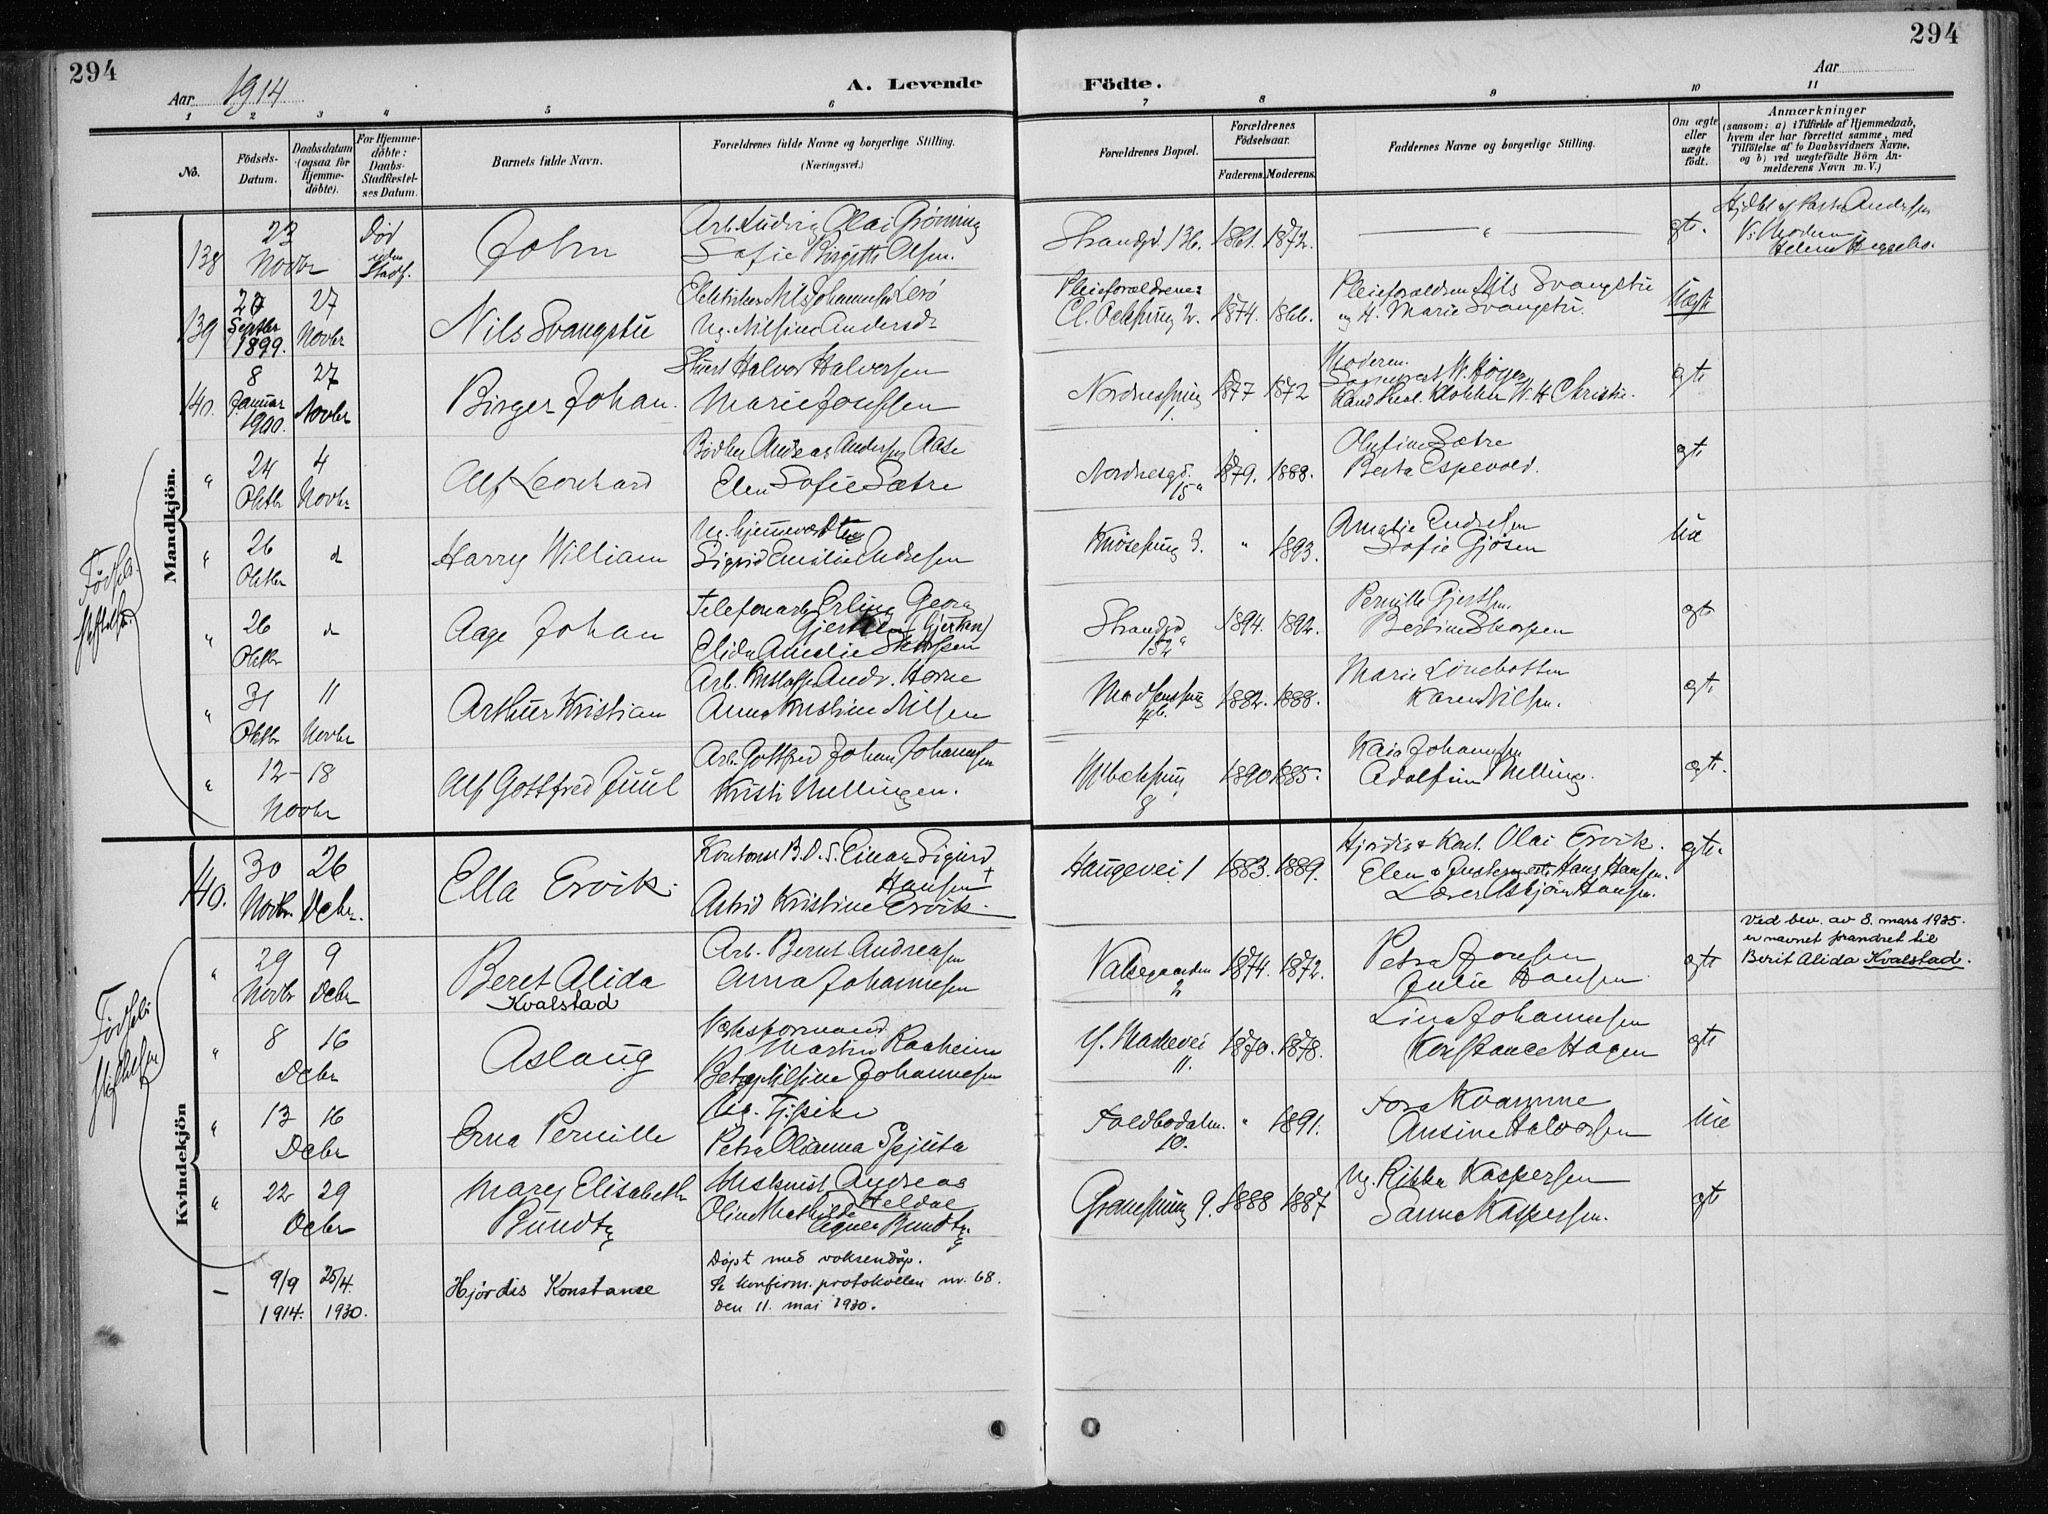 294
294
Aar 1914
A. Levende
Födte.
Aar
1 2 3 4 5 6 7 8 9 10 11
No.
Födsels-
Datum.
Daabsdatum
(ogsaa for
Hjemme-
döbte).
For Hjemme-
döbte:
Daabs-
Stadfæstel-
ses Datum.
Barnets fulde Navn.
Forældrenes fulde Navne og borgerlige Stilling.
(Næringsvei.)
Forældrenes Bopæl.
Forældrenes
Födselsaar.
Faderens. Moderens.
Faddernes Navne og borgerlige Stilling.
Om ægte
eller
uægte
födt.
Anmærkninger
(saasom: a) i Tilfælde af Hjemmedaab,
hvem der har forrettet samme, med
Tilföielse af to Daabsvidners Navne,
og b) ved uægtefödte Börn An-
melderens Navn m. V.)
Mandkjön.
138
23
Novbr
Død
uden
Stadf.
John
Arb. Ludvig Olai Grönning
Sofie Birgitte Olsen.
Strandgd. 136. 1861. 1872.
"
gte.
Moderen
139
27
Septbr
1899.
27
Novbr
Nils Svangstu
Elektriker Nils Johannesen Lerö
Ug. Nilsine Andersdr
Pleieforældrenes
1874. 1866.
Pleieforældrene Nils Svangstu
og H. Marie Svangstu.
Uægte
140.
8
Januar
1900.
27
Novbr
Birger Johan.
Stuert Halvor Halvorsen
Marie Jonssen
Nordnessmug
1.
1877 1872
Moderen.
W. H. Christie.
gte
"
24
Oktbr
4
Novbr
Alf Leonhard
Bödker Andreas Andersen Aase
Elen Sofie Sætre
Nordnesgd.
15a
1879. 1888.
Olufine Sætre
Berta Espevold.
gte
"
26
Oktbr
d
Harry William
Ug. hjemmeværdte
Sigrid Amalie Andresen
Knösesmug 3. " 1893.
Amalie Endresen
Sofie Gjösen
Uæ
"
26
Oktbr
d
Aage Johan
Telefonarb. Erling Georg
Gjertsen (Gjertsen)
Elida Amalie Skorpen
Strandgd
152a
1894. 1892.
Pernille Gjertsen.
Bertine Skorpen
gte
"
31
Oktbr
11
Novbr
Arthur Kristian
Arb. Kristoffer Andr. Horne
Anna Kristine Nilsen
1882. 1888.
Marie Lönebotten
Karen Nilsen.
gte
"
12 - 18
Novbr
Alf Gottfred Juul
Arb. Gottfred Johan Johannesen
Kristi Mellingen.
8
1890 1885.
Kaia Johannesen
Adolfine Melling.
gte.
Kvindekjön
140.
30
Novbr.
26
Debr.
Ella Ervik.
Kontorist B.D.S. Einar Sigurd
Hansen +
Astrid Kristine Ervik.
Haugevei 1 1883. 1889.
Hjördis & Kont. Olai Ervik.
Elen & Hans Hansen.
Lærer Asbjörn Hansen.
gte.
"
29
Novbr
9
Debr
Beret Alida
Kvalstad
Arb. Bernt Andreasen
Anna Johannesen
1874. 1872.
Petra Jonsen
Julie Hansen
gte
Ved bev. av 8. mars 1935.
er navnet forandret til
Berit Alida Kvalstad.
"
8
16
Debr
Aslaug
Martin Raaheim
Johannesen
11.
1870. 1878.
Lina Johannesen
Konstance Hagen
gte
"
13
16
Debr
Erna Pernille
Ug. Tj.pike
Petra Olianna Spjuta
Toldbodalm.
10.
" 1891.
Tora Kvamme
Ansine Halvorsen
Uæ
"
22
29
Debr
Mary Elisabeth
Bundtz
Maskinist Andreas
Heldal
Oline Mathilde
Agnes Bundtz.
Granesmug 9. 1888 1887
Ug. Rikka Kaspersen
Sanna Kaspersen.
gte
—
9/9
1914.
25/4
1930.
Hjördis Konstanse
Döpt med voksendåp.
Se konfirm. protokollen nr. 68.
den 11. mai 1930.